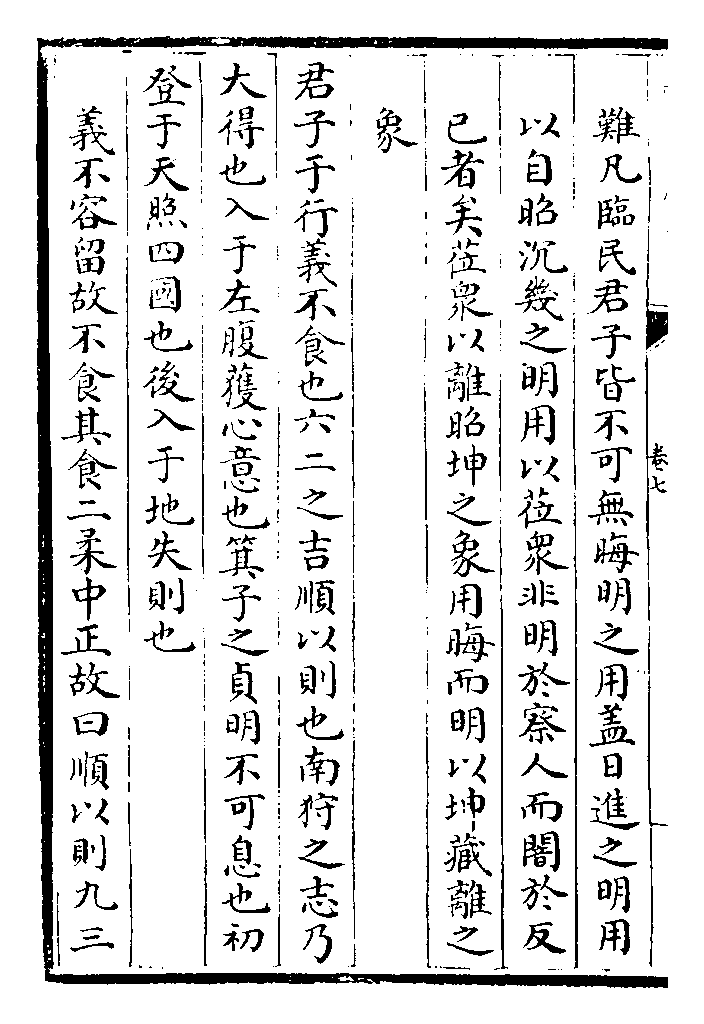 卷七
難凡臨民君子皆不可無晦明之用盖日進之明用
以自昭沉幾之明用以莅衆非明於察人而闇於反
已者矣莅衆以離昭坤之象用晦而明以坤藏離之
象
君子于行義不食也六二之吉順以則也南狩之志乃
大得也入于左腹獲心意也箕子之貞明不可息也初
登于天照四國也後入于地失則也
義不容留故不食其食二柔中正故曰順以則九三